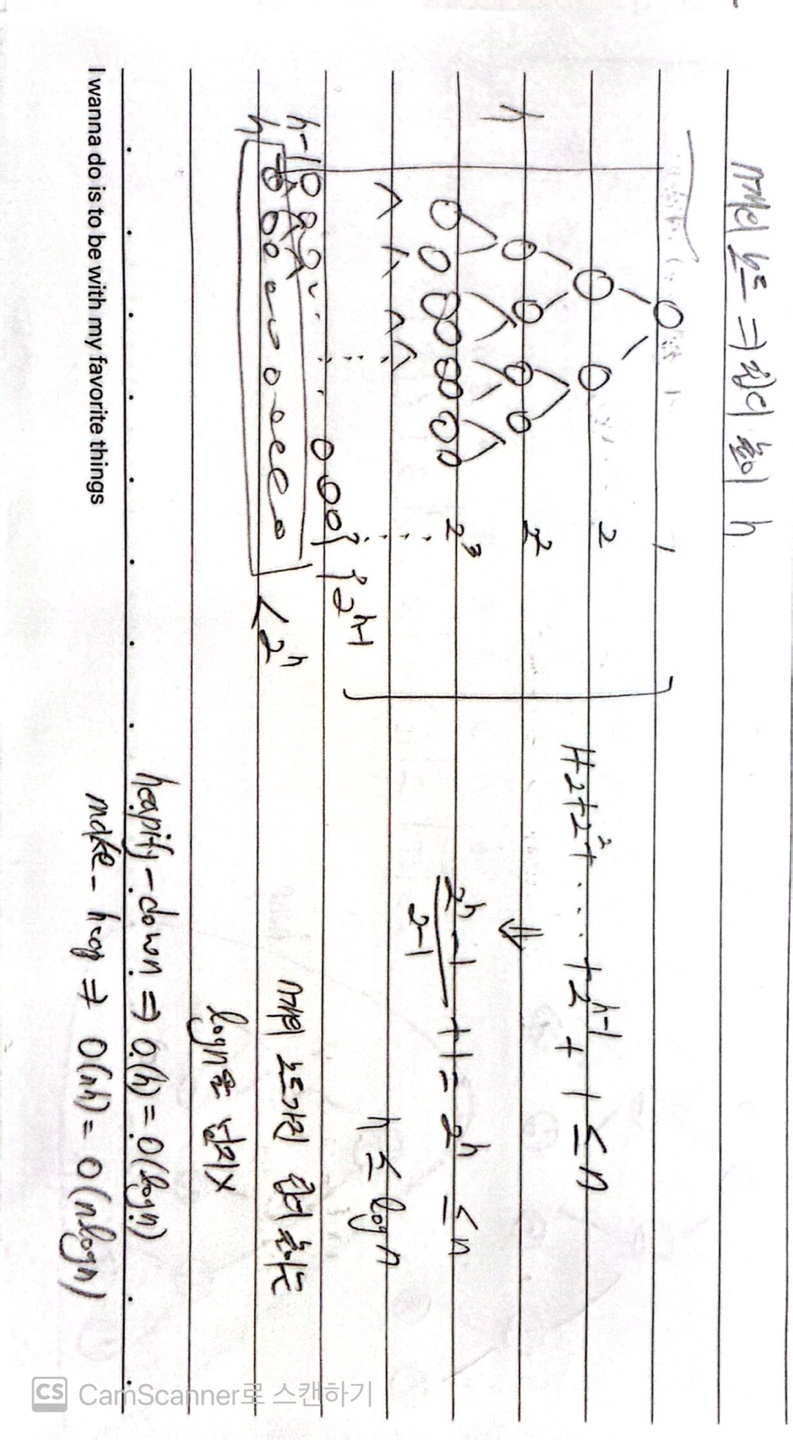 n개의 노드 ⇒ 힙의 높이 h
h
1
2
2²
2³
h-1
2^{h-1}
h
< 2^h
1+2+2²+....+2^{h-1} + 1 ≤ n
⇓
\frac{2^h-1}{2-1} + 1 = 2^h ≤ n
h ≤ log n
n개의 노드가진 힙의 높이는
log n을 넘지X
heapify-down ⇒ O(h) = O(log n)
make-heap ⇒ O(nh) = O(n log n)
I wanna do is to be with my favorite things
CS CamScanner로 스캔하기